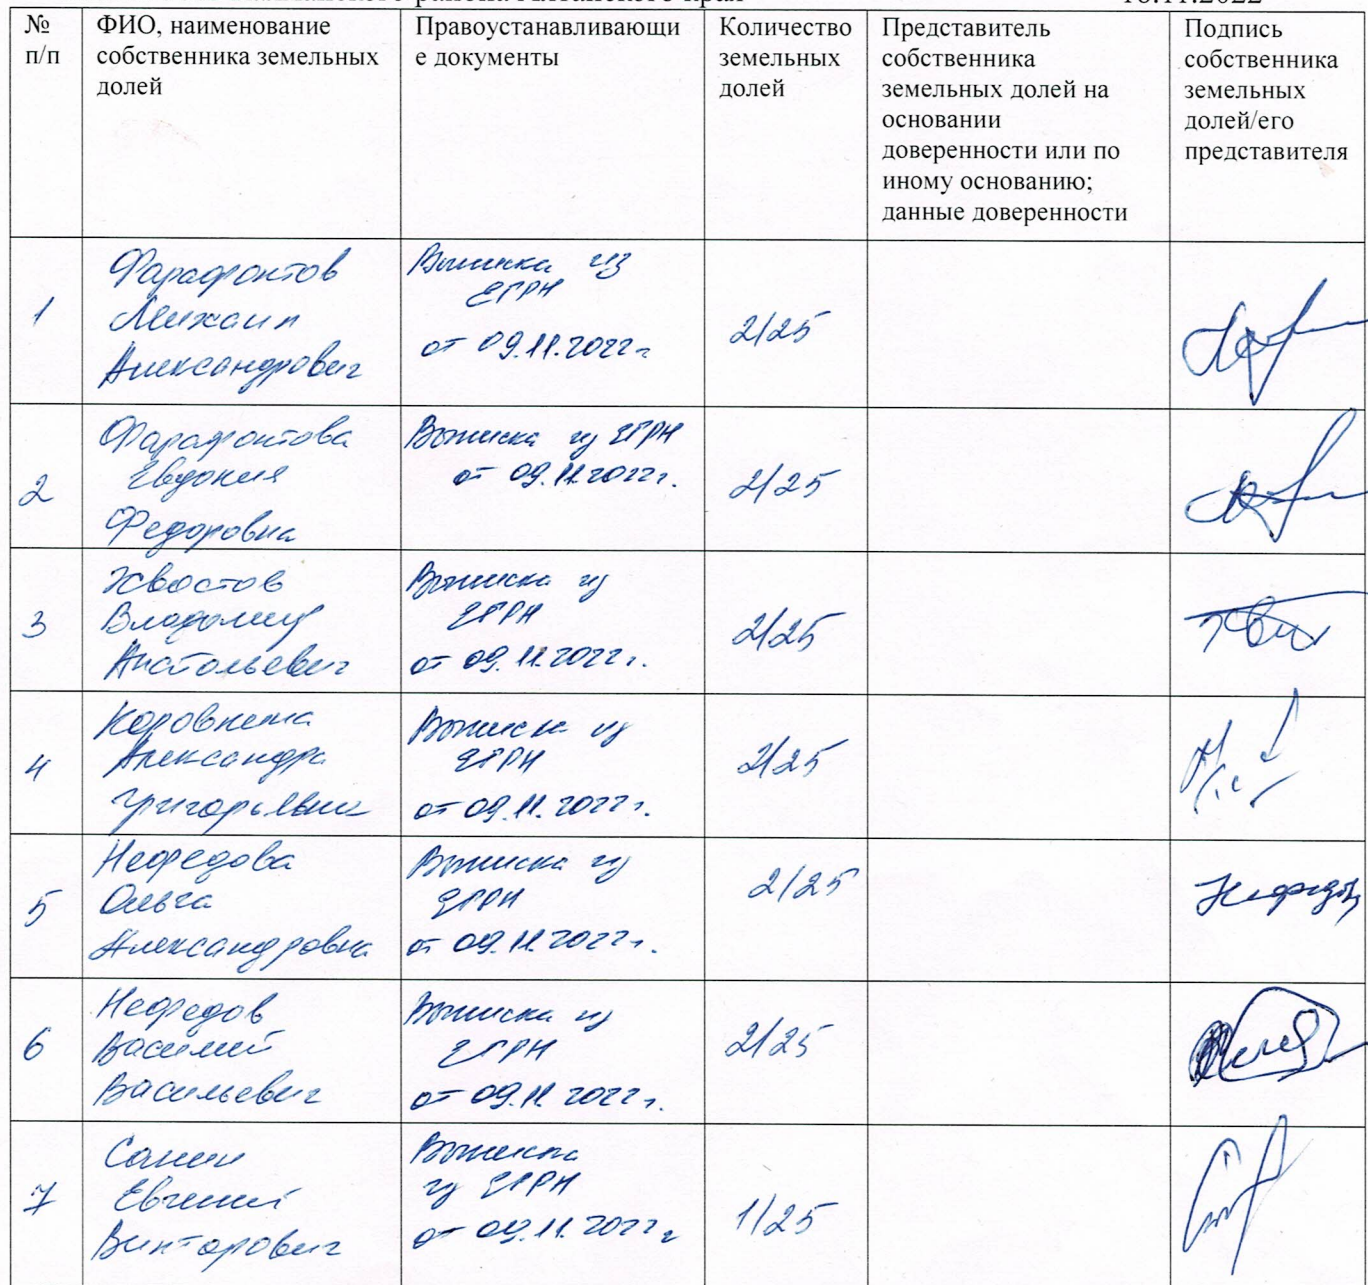 района Алтайского края
№
п/п
ФИО, наименование
собственника земельных
долей
Правоустанавливающи
е документы
Количество
земельных
долей
Представитель
собственника
земельных долей на
основании
доверенности или по
иному основанию;
данные доверенности
Подпись
собственника
земельных
долей/его
представителя
1
Фарафонтов
Михаил
Александрович
Выписка из
ЕГРН
от 09.11.2022г
2/25
2
Фарафонтова
Евдокия
Федоровна
Выписка из ЕГРН
от 09.11.2022г.
2/25
3
Хвостов
Владимир
Анатольевич
Выписка из
ЕГРН
от 09.11.2022г.
2/25
4
Александра
Григорьевна
Выписка из
ЕГРН
от 09.11.2022г.
2/25
5
Нефедова
Ольга
Александровна
Выписка из
ЕГРН
от 09.11.2022г.
2/25
Нефедов
6
Нефедов
Василий
Васильевич
Выписка из
ЕГРН
от 09.11.2022г.
2/25
7
Евгений
Викторович
Выписка
из ЕГРН
от 09.11.2022г
1/25